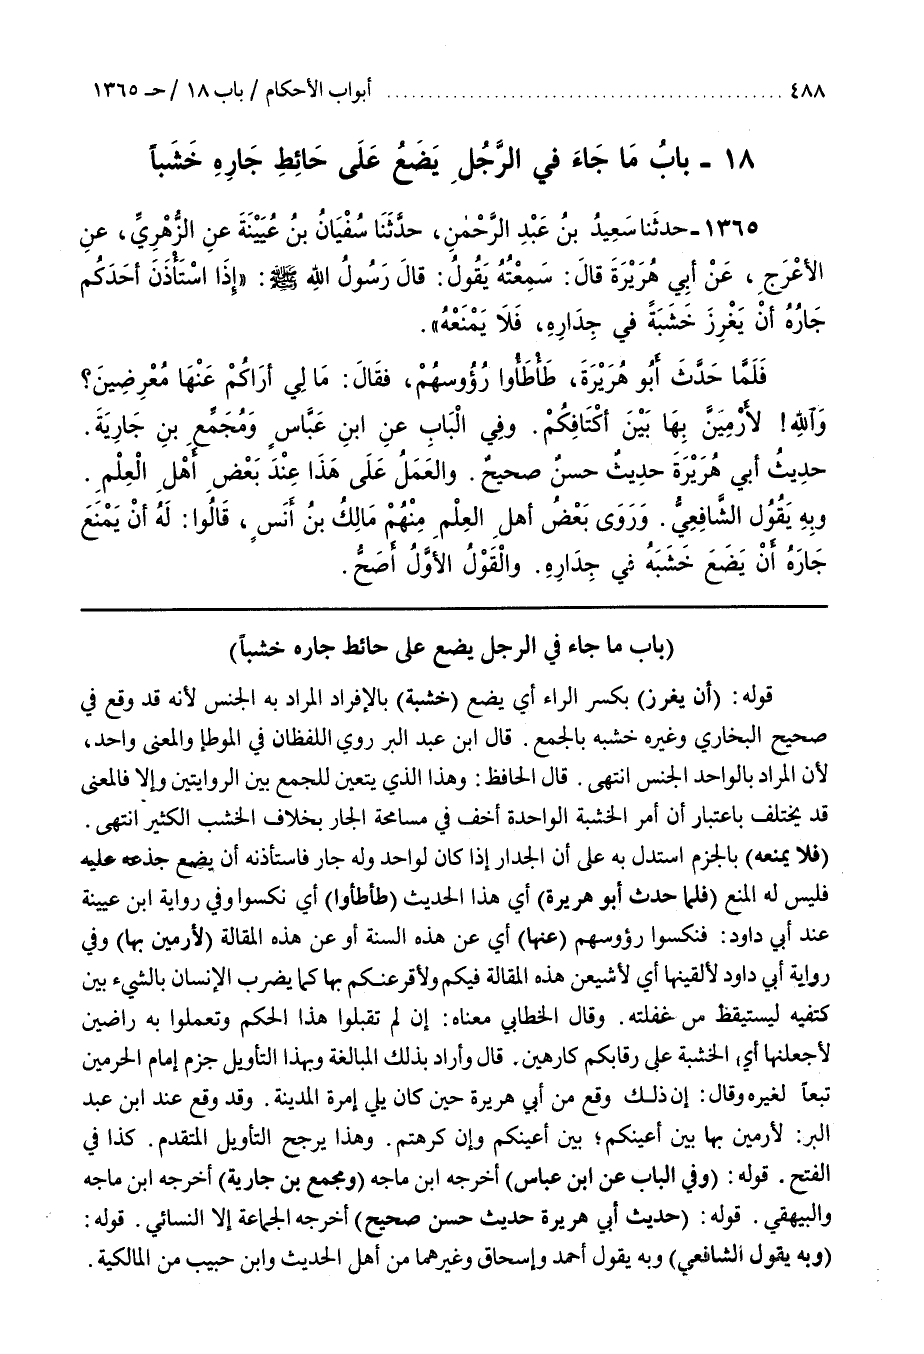 ٤٨٨ ................................................ أبواب الأحكام / باب ١٨ / حـ ١٣٦٥
١٨ - بابُ مَا جَاءَ في الرَّجُلِ يَضَعُ عَلَى حَائِطِ جَارِهِ خَشَباً
١٣٦٥ - حدثَنا سَعِيدُ بنُ عَبْدِ الرَّحْمٰنِ، حدَّثَنَا سُفْيَانُ بنُ عُيَيْنَةَ عنِ الزُّهْرِيِّ، عنِ
الأعْرَجِ، عَنْ أبي هُرَيْرَةَ قالَ: سَمِعْتُهُ يَقُولُ: قالَ رَسُولُ اللهِ ﷺ: «إِذَا اسْتَأْذَنَ أحَدَكُم
جَارُهُ أنْ يَغْرِزَ خَشَبَةً في جِدَارِهِ، فَلَا يَمْنَعْهُ».
فَلَمَّا حَدَّثَ أَبُو هُرَيْرَةَ، طَأْطَأُوا رُؤُوسهُمْ، فقَالَ: مَا لِي أرَاكُمْ عَنْهَا مُعْرِضِينَ؟
وَاللهِ! لأَرْمِيَنَّ بِهَا بَيْنَ أكْتَافِكُمْ. وفِي الْبَابِ عنِ ابنِ عَبَّاسٍ وَمُجَمِّعِ بنِ جَارِيَةَ.
حديثُ أبي هُرَيْرَةَ حديثٌ حسنٌ صحيحٌ. والعَمَلُ عَلَى هَذَا عِنْدَ بَعْضِ أَهْلِ الْعِلْمِ.
وبِهِ يَقُول الشَّافِعِيُّ. وَرَوَى بَعْضُ أهلِ العِلْمِ مِنْهُمْ مَالِكُ بنُ أنَسٍ، قَالُوا: لَهُ أنْ يَمْنَعَ
جَارَهُ أَنْ يَضَعَ خَشَبَهُ في جِدَارِهِ. والْقَوْلُ الأوَّلُ أَصَحُّ.
(باب ما جاء في الرجل يضع على حائط جاره خشباً)
قوله: (أن يغرز) بكسر الراء أي يضع (خشبة) بالإفراد المراد به الجنس لأنه قد وقع في
صحيح البخاري وغيره خشبه بالجمع. قال ابن عبد البر روي اللفظان في الموطإ والمعنى واحد،
لأن المراد بالواحد الجنس انتهى. قال الحافظ: وهذا الذي يتعين للجمع بين الروايتين وإلا فالمعنى
قد يختلف باعتبار أن أمر الخشبة الواحدة أخف في مسامحة الجار بخلاف الخشب الكثير انتهى.
(فلا يمنعه) بالجزم استدل به على أن الجدار إذا كان لواحد وله جار فاستأذنه أن يضع جذعه عليه
فليس له المنع (فلما حدث أبو هريرة) أي هذا الحديث (طأطأوا) أي نكسوا وفي رواية ابن عيينة
عند أبي داود: فنكسوا رؤوسهم (عنها) أي عن هذه السنة أو عن هذه المقالة (لأرمين بها) وفي
رواية أبي داود لألقينها أي لأشيعن هذه المقالة فيكم ولأقرعنكم بها كما يضرب الإنسان بالشيء بين
كتفيه ليستيقظ من غفلته. وقال الخطابي معناه: إن لم تقبلوا هذا الحكم وتعملوا به راضين
لأجعلنها أي الخشبة على رقابكم كارهين. قال وأراد بذلك المبالغة وبهذا التأويل جزم إمام الحرمين
تبعاً لغيره وقال: إن ذلك وقع من أبي هريرة حين كان يلي إمرة المدينة. وقد وقع عند ابن عبد
البر: لأرمين بها بين أعينكم؛ بين أعينكم وإن كرهتم. وهذا يرجح التأويل المتقدم. كذا في
الفتح. قوله: (وفي الباب عن ابن عباس) أخرجه ابن ماجه (ومجمع بن جارية) أخرجه ابن ماجه
والبيهقي. قوله: (حديث أبي هريرة حديث حسن صحيح) أخرجه الجماعة إلا النسائي. قوله:
(وبه يقول الشافعي) وبه يقول أحمد وإسحاق وغيرهما من أهل الحديث وابن حبيب من المالكية.